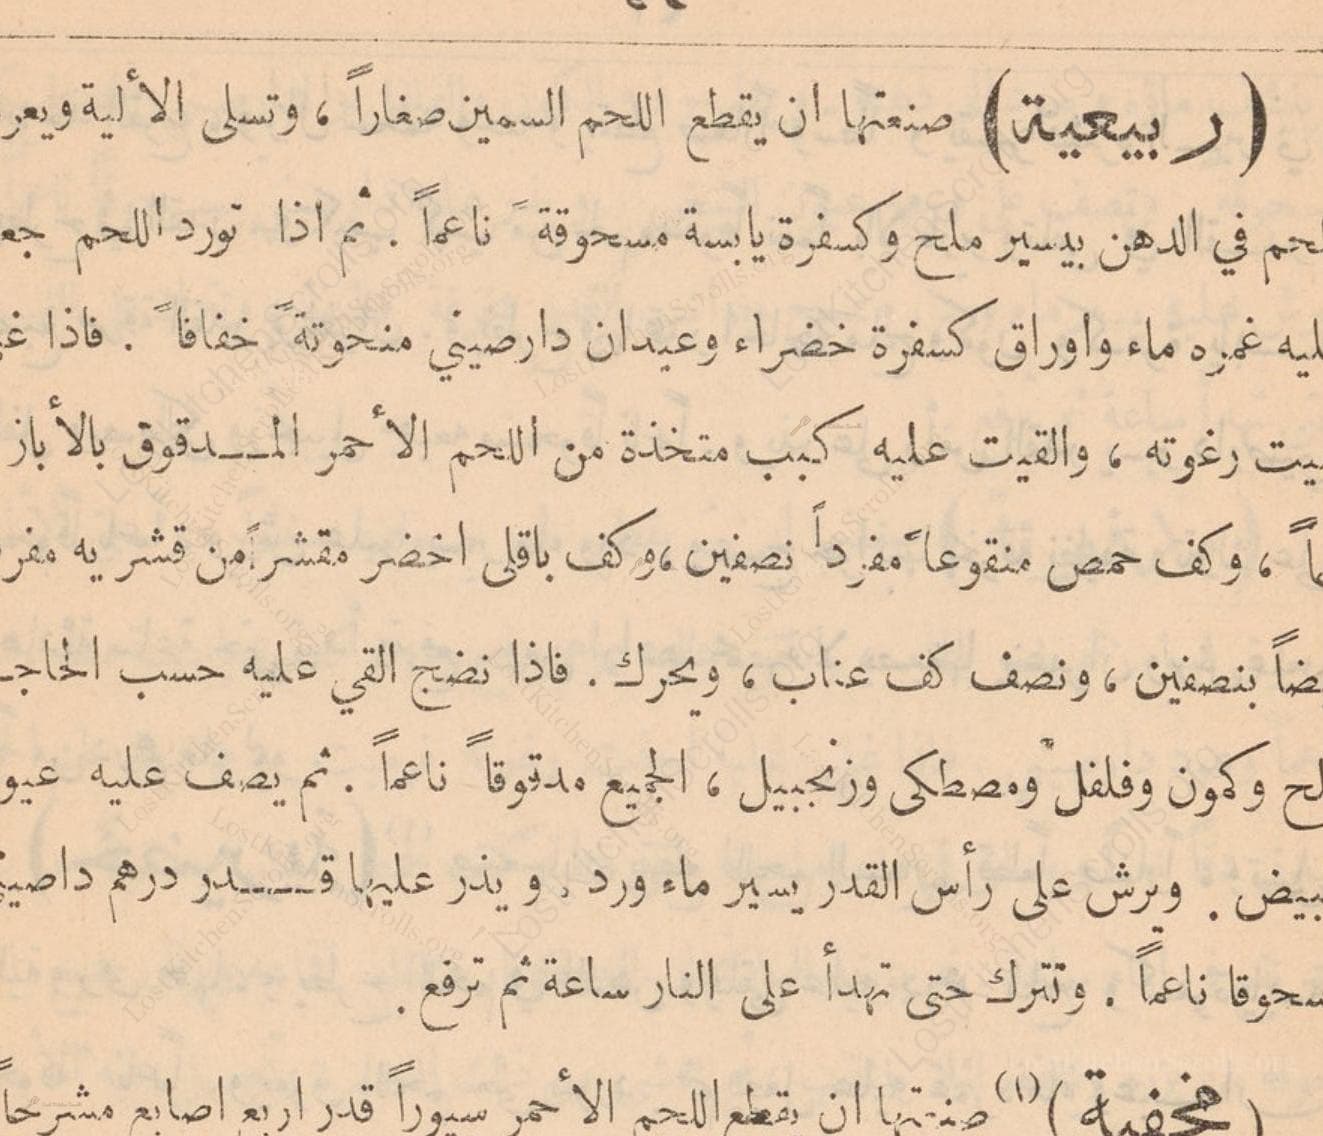 (ربيعية) صنعتها ان يقطع اللحم السمين صغاراً ، وتسلى الألية ويعر
لحم في الدهن بيسير ملح وكسفرة يابسة مسحوقة ً ناعماً . ثم اذا تورد اللحم جعـ
ليه غمره ماء واوراق كسفرة خضراء وعيدان دارصيني منحوتة ً خفافا ً . فاذا غـ
يت رغوته ، والقيت عليه كبب متخذة من اللحم الأحمر المـــدقوق بالأباز
ـاً ، وكف حمص منقوعا ً مفرداً نصفين ، وكف باقلى اخضر مقشراً من قشريه مفر
ـضاً بنصفين ، ونصف كف عناب ، ويحرك . فاذا نضج القي عليه حسب الحاجـ
لح وكمون وفلفل ومصطكى وزنجبيل ، الجميع مدقوقاً ناعماً . ثم يصف عليه عيو
بيض . ويرش على رأس القدر يسير ماء ورد . ويذر عليها قــــدر درهم داصيني
سحوقا ناعماً . وتترك حتى تهدأ على النار ساعة ثم ترفع .
(مخفية) (١) صنعتها ان يقطع اللحم الأحمر سيوراً قدر اربع اصابع مشرحاً